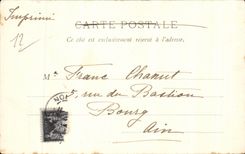 Imprimé
12
CARTE POSTALE
Ce côté est exclusivement réservé à l'adresse.
M. Franc Chanut
5, rue du Bastion
Bourg
Ain